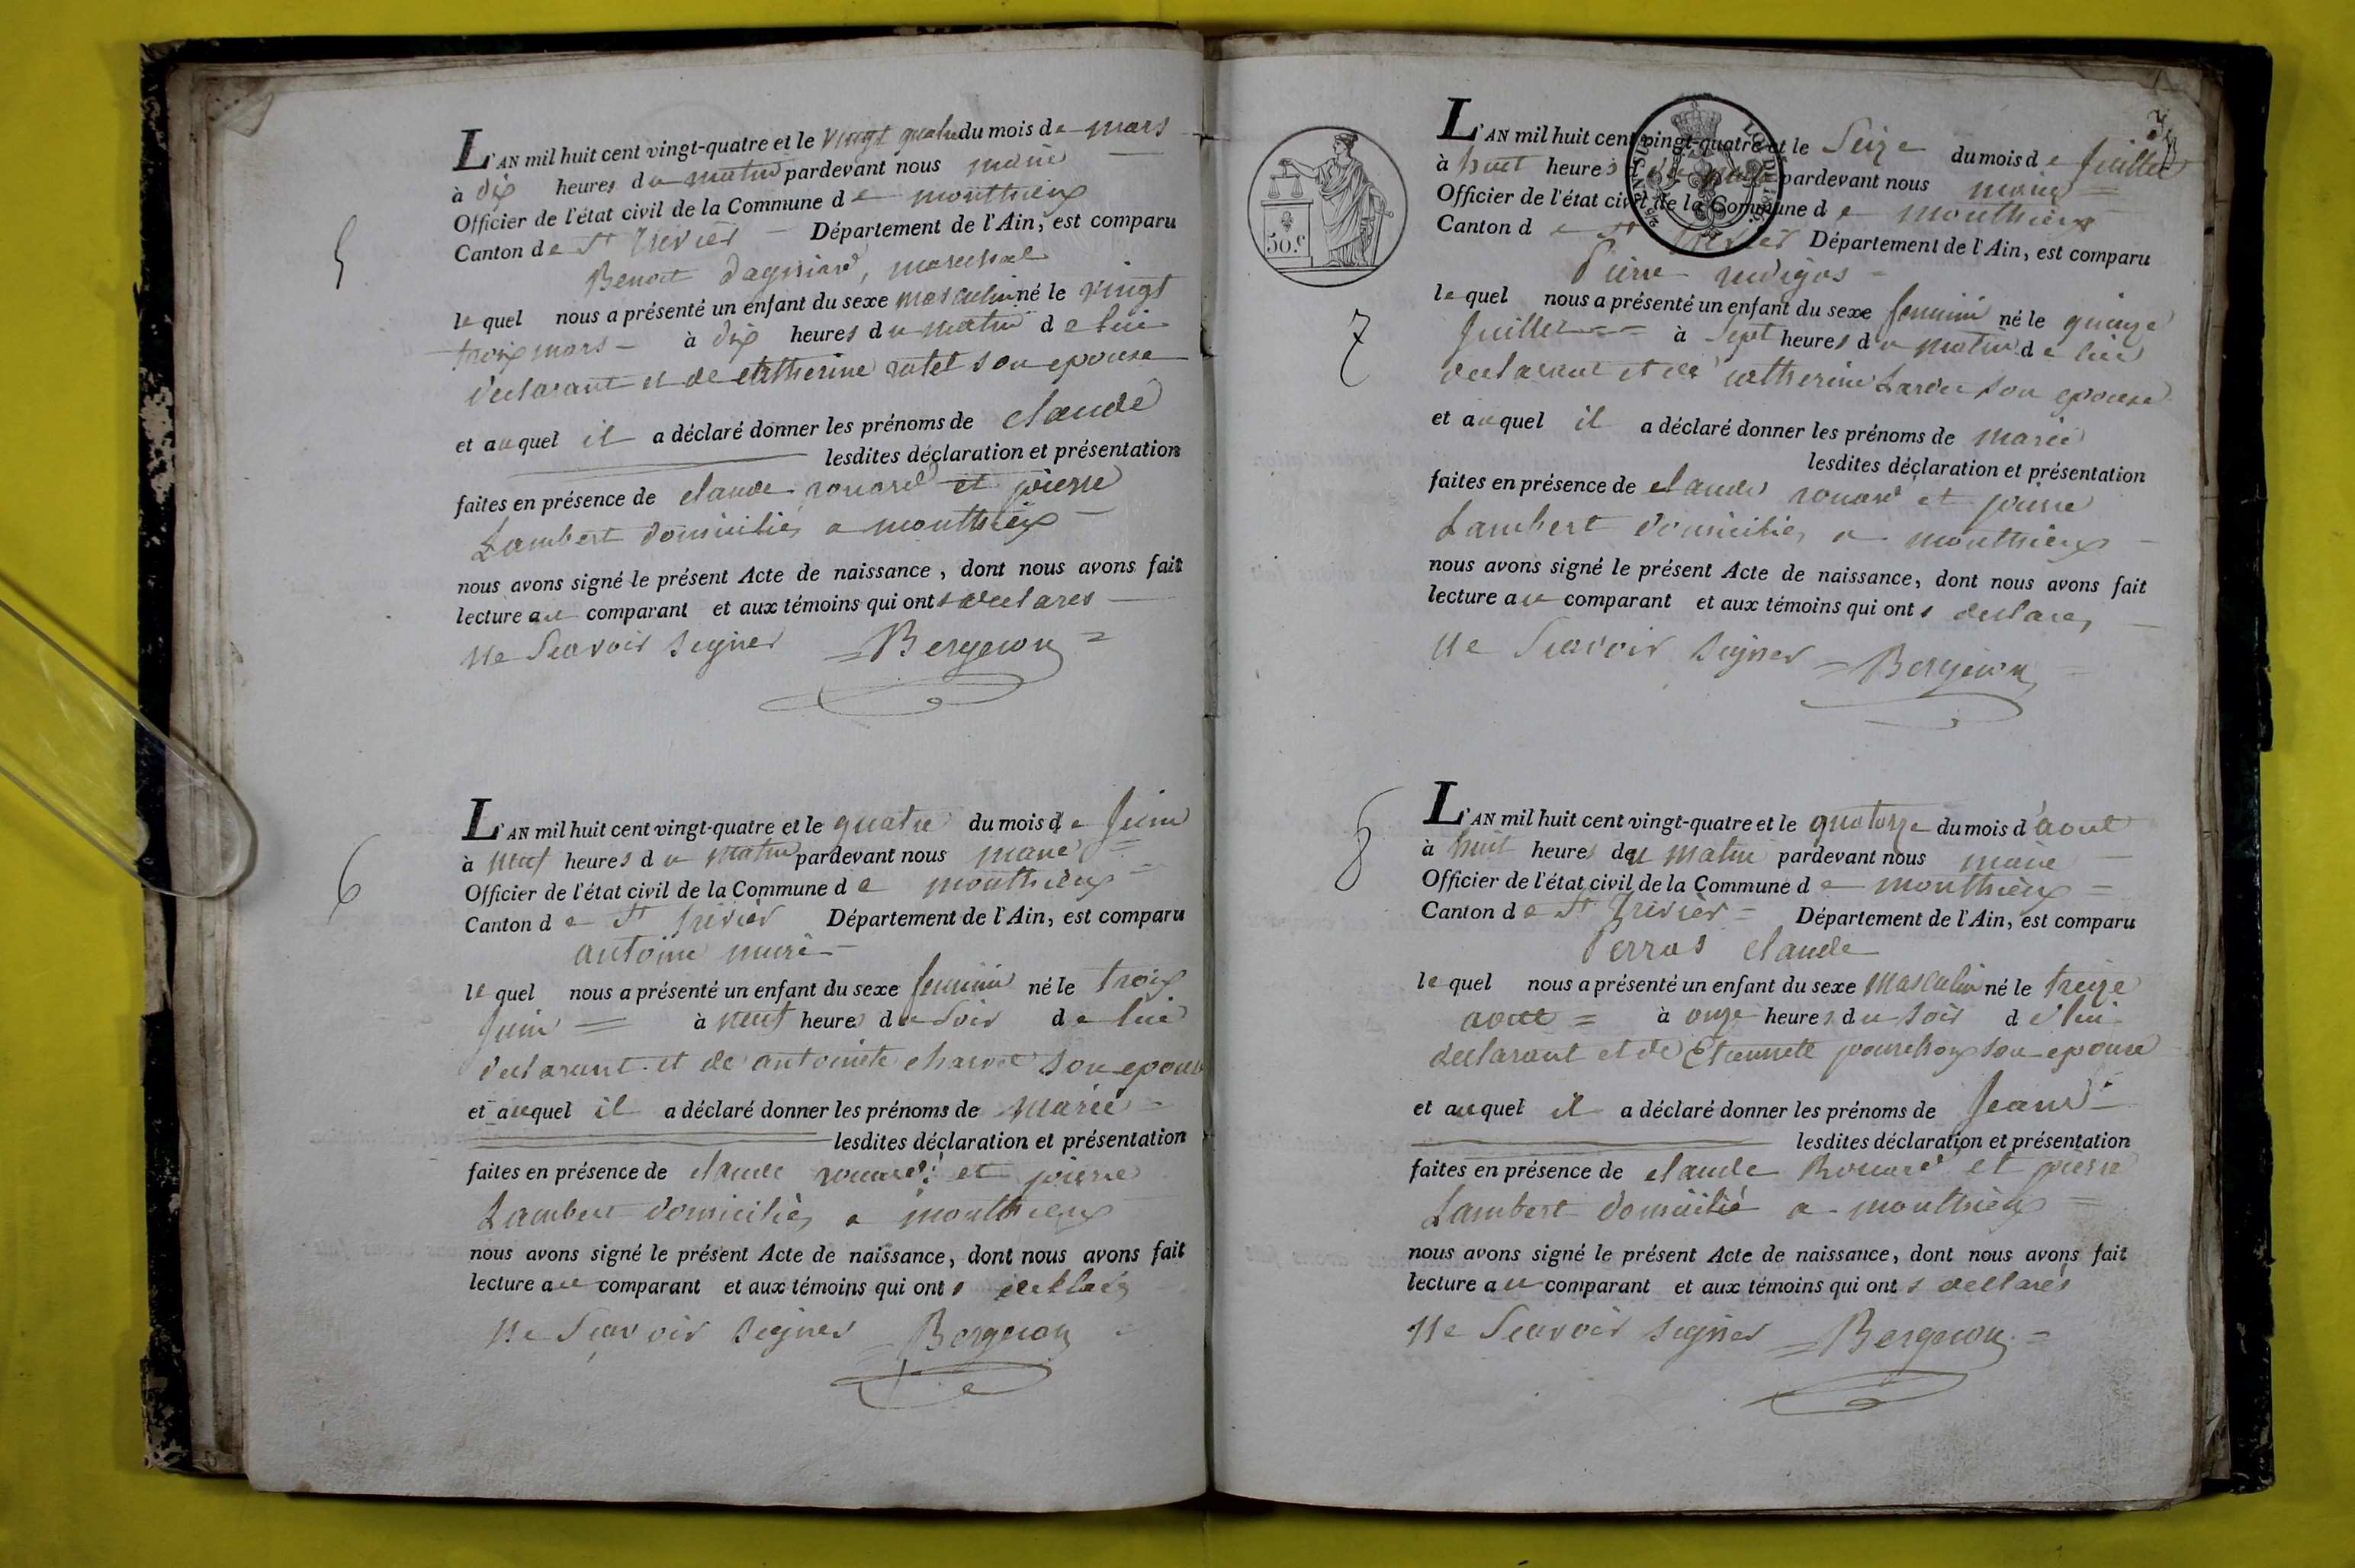 5
L'AN mil huit cent vingt-quatre et le vingt quatre du mois de mars
à dix heures du matin pardevant nous maire
Officier de l'état civil de la Commune de monthieux
Canton de St trivier Département de l'Ain, est comparu
Benoit dagniard, marechal
lequel nous a présenté un enfant du sexe masculin né le vingt
troix mars à dix heures du matin de lui
declarant et de catherine ratet son epouse
et auquel il a déclaré donner les prénoms de claude
lesdites déclaration et présentation
faites en présence de claude rouard et pierre
Lambert domiciliés a monthieux
nous avons signé le présent Acte de naissance, dont nous avons fait
lecture au comparant et aux témoins qui ont declares
ne Scavoir signer = Bergeron =
6
L'AN mil huit cent vingt-quatre et le quatre du mois de Juin
à neuf heures du matin pardevant nous maire =
Officier de l'état civil de la Commune de monthieux
Canton de St trivier Département de l'Ain, est comparu
antoine
lequel nous a présenté un enfant du sexe feminin né le troix
Juin = à neuf heures du Soir de lui
declarant et de antoinete son epouse
et auquel il a déclaré donner les prénoms de marie
lesdites déclaration et présentation
faites en présence de claude rouard et pierre
Lambert domiciliés a monthieux
nous avons signé le présent Acte de naissance, dont nous avons fait
lecture au comparant et aux témoins qui ont s
ne Scavoir signer Bergeron
50.c
7
L'AN mil huit cent vingt-quatre et le Seize du mois de Juillet
à huit heures du matin pardevant nous maire =
Officier de l'état civil de la Commune de monthieux
Canton de St trivier Département de l'Ain, est comparu
Pierre
lequel nous a présenté un enfant du sexe feminin né le quinze
Juillet = à Sept heures du matin de lui
declarant et de catherine Lardet son epouse
et auquel il a déclaré donner les prénoms de marie
lesdites déclaration et présentation
faites en présence de claude rouard et pierre
Lambert domiciliés a monthieux
nous avons signé le présent Acte de naissance, dont nous avons fait
lecture au comparant et aux témoins qui ont s declares
ne Scavoir signer = Bergeron =
8
L'AN mil huit cent vingt-quatre et le quatorze du mois d'aout
à huit heures deu matin pardevant nous maire
Officier de l'état civil de la Commune de monthieux =
Canton de St trivier = Département de l'Ain, est comparu
Perras claude
lequel nous a présenté un enfant du sexe masculin né le treize
aout = à onze heures du soir de lui
declarant et de Etiennete son epouse
et auquel il a déclaré donner les prénoms de Jean
lesdites déclaration et présentation
faites en présence de claude Rouard et pierre
Lambert domicilié a monthieux =
nous avons signé le présent Acte de naissance, dont nous avons fait
lecture au comparant et aux témoins qui ont s declarés
ne Scavoir signer = Bergeron =